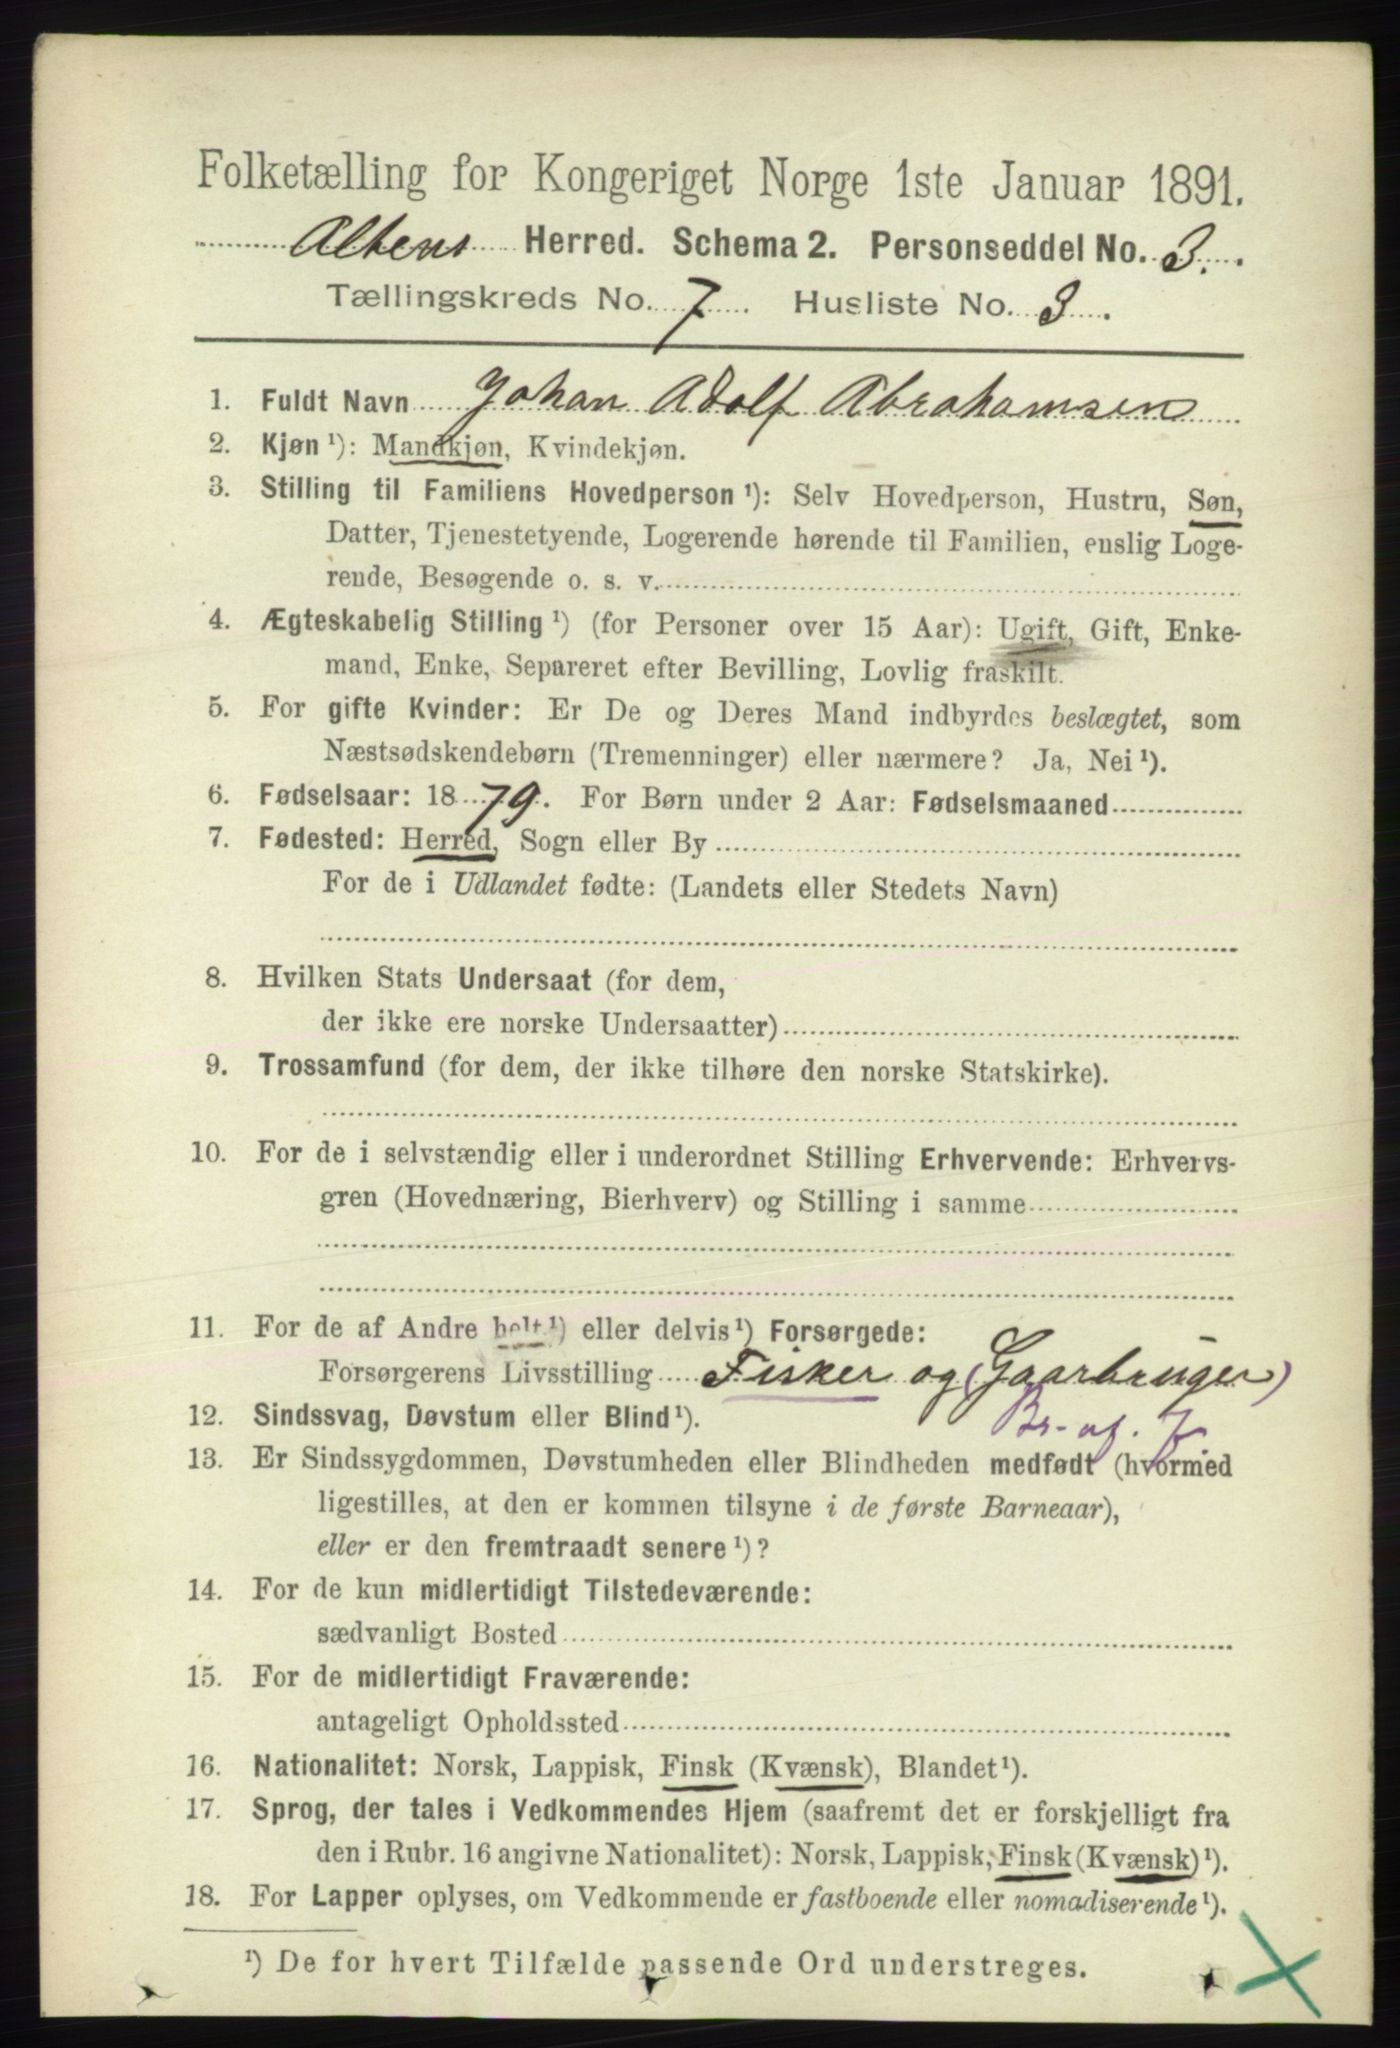 Folketælling for Kongeriget Norge 1ste Januar 1891.
Altens Herred. Schema 2. Personseddel No. 3.
Tællingskreds No. 7. Husliste No. 3.
1. Fuldt Navn Johan Adolf Abrahamsen
2. Kjøn ¹): Mandkjøn, Kvindekjøn.
3. Stilling til Familiens Hovedperson ¹): Selv Hovedperson, Hustru, Søn,
Datter, Tjenestetyende, Logerende hørende til Familien, enslig Loge-
rende, Besøgende o. s. v.
4. Ægteskabelig Stilling ¹) (for Personer over 15 Aar): Ugift, Gift, Enke-
mand, Enke, Separeret efter Bevilling, Lovlig fraskilt.
5. For gifte Kvinder: Er De og Deres Mand indbyrdes beslægtet, som
Næstsødskendebørn (Tremenninger) eller nærmere? Ja, Nei ¹).
6. Fødselsaar: 1879. For Børn under 2 Aar: Fødselsmaaned
7. Fødested: Herred, Sogn eller By
For de i Udlandet fødte: (Landets eller Stedets Navn)
8. Hvilken Stats Undersaat (for dem,
der ikke ere norske Undersaatter)
9. Trossamfund (for dem, der ikke tilhøre den norske Statskirke).
10. For de i selvstændig eller i underordnet Stilling Erhvervende: Erhvervs-
gren (Hovednæring, Bierhverv) og Stilling i samme
11. For de af Andre helt ¹) eller delvis ¹) Forsørgede:
Forsørgerens Livsstilling Fisker og (Gaarbruger)
Br. af. J.
12. Sindssvag, Døvstum eller Blind ¹).
13. Er Sindssygdommen, Døvstumheden eller Blindheden medfødt (hvormed
ligestilles, at den er kommen tilsyne i de første Barneaar),
eller er den fremtraadt senere ¹)?
14. For de kun midlertidigt Tilstedeværende:
sædvanligt Bosted
15. For de midlertidigt Fraværende:
antageligt Opholdssted
16. Nationalitet: Norsk, Lappisk, Finsk (Kvænsk), Blandet ¹).
17. Sprog, der tales i Vedkommendes Hjem (saafremt det er forskjelligt fra
den i Rubr. 16 angivne Nationalitet): Norsk, Lappisk, Finsk (Kvænsk) ¹).
18. For Lapper oplyses, om Vedkommende er fastboende eller nomadiserende ¹).
¹) De for hvert Tilfælde passende Ord understreges.